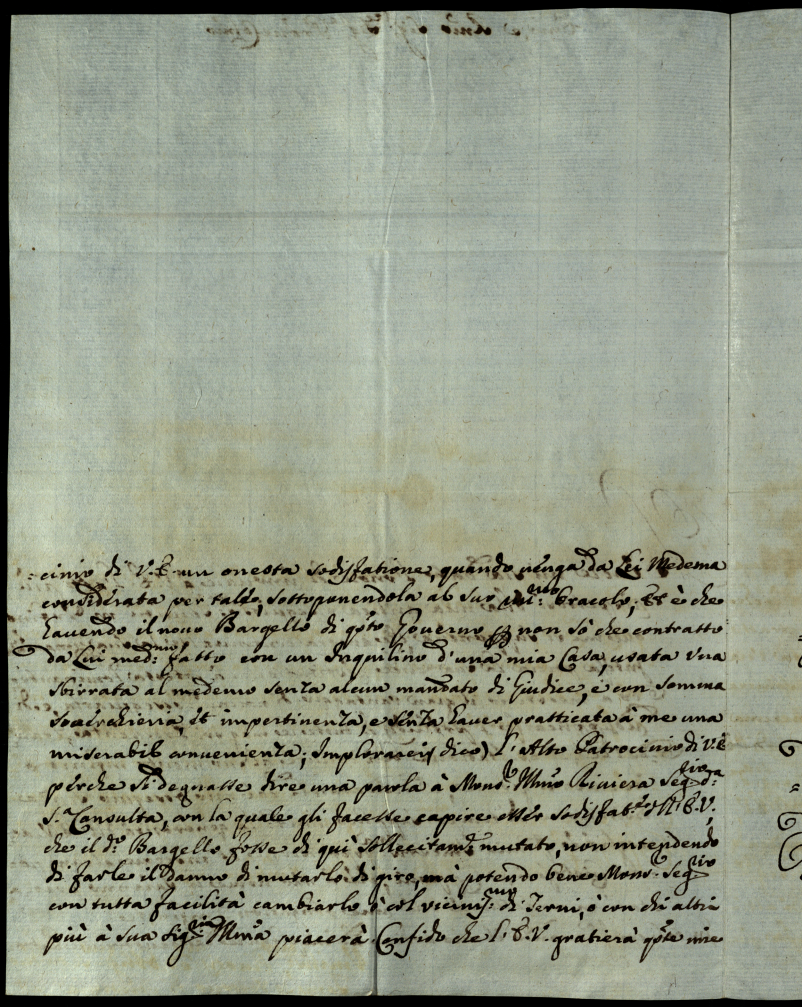 :cinio di V. E. un onesta sodisfatione, quando venga da Lei Medema
considerata per tale, sottoponendola al suo oracolo; Et è che
havendo il novo Bargello di qsto Governo non sò che contratto
da Lui med:mo fatto con un Inquilino d'una mia Casa, usata una
sbirrata al medemo senza alcun mandato di Giudice, e con somma
soverchieria, et impertinenza, e senza haver pratticata à me una
miserabile convenienza; Implorarei (dico) l'Alto Patrocinio di V. E.
perche si degnasse dire una parola à Mons:r Illmo Riviera Seg:rio d:a
S. Consulta, con la quale gli facesse capire esser sodisfat:ne dell' E. V.,
che il d:o Bargello fosse di quì sollecitam:te mutato, non intendendo
di farle il danno di mutarlo di giro, mà potendo bene Mons:r Seg:rio
con tutta facilità cambiarlo ò col vicin:mo di Terni, ò con chi altri
più à sua Sig:ria Illma piacerà. Confido che l' E. V. gratierà qste mie